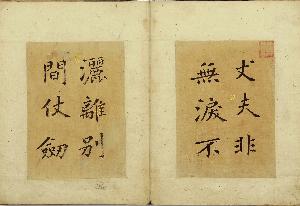 丈夫非
無淚不
灑離別
間仗劒